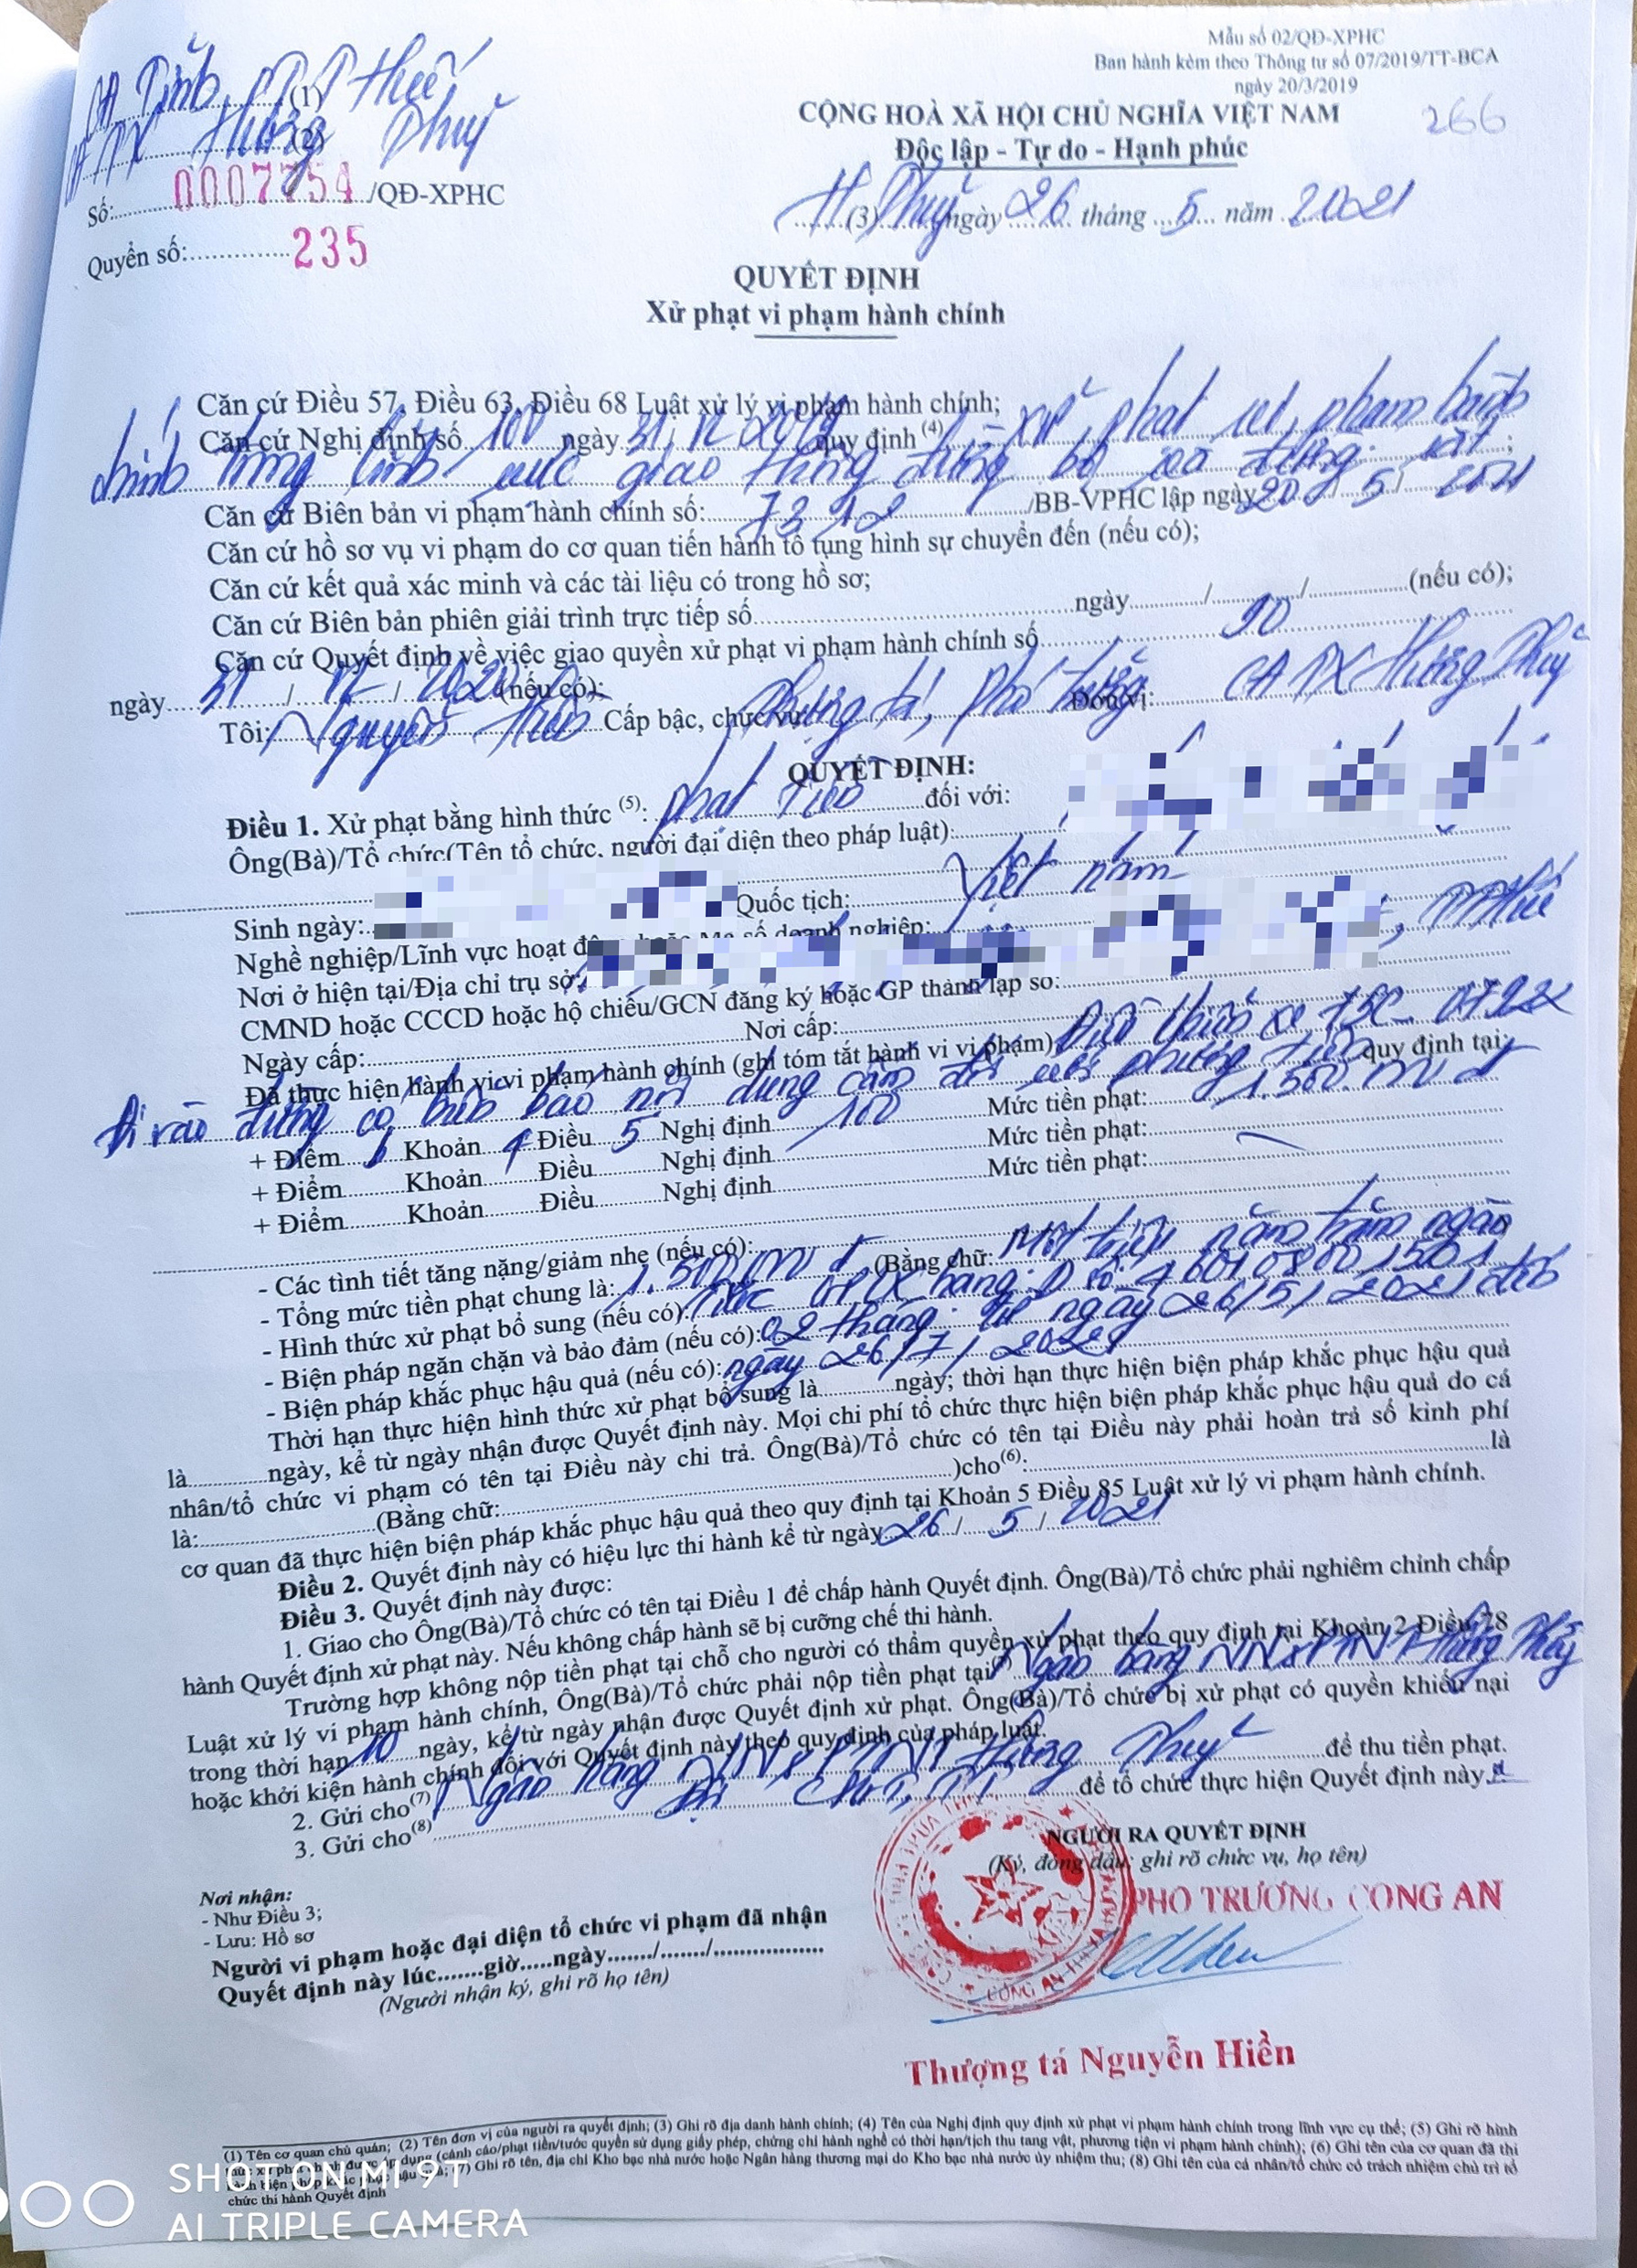 Mẫu số 02/QĐ-XPHC
Ban hành kèm theo Thông tư số 07/2019/TT-BCA
ngày 20/3/2019
266
CA Tỉnh (1) TT Huế
CA TX Hương (2) Thuỷ
Số: 0007754 /QĐ-XPHC
Quyển số: 235
CỘNG HOÀ XÃ HỘI CHỦ NGHĨA VIỆT NAM
Độc lập - Tự do - Hạnh phúc
H (3) Thuỷ ngày 26 tháng 5 năm 2021
QUYẾT ĐỊNH
Xử phạt vi phạm hành chính
Căn cứ Điều 57, Điều 63, Điều 68 Luật xử lý vi phạm hành chính;
Căn cứ Nghị định số 100 ngày 31/12/2019 quy định (4) xử phạt vi phạm hành
chính trong lĩnh vực giao thông đường bộ và đường sắt;
Căn cứ Biên bản vi phạm hành chính số: /BB-VPHC lập ngày 20/5/2021
Căn cứ hồ sơ vụ vi phạm do cơ quan tiến hành tố tụng hình sự chuyển đến (nếu có);
Căn cứ kết quả xác minh và các tài liệu có trong hồ sơ;
Căn cứ Biên bản phiên giải trình trực tiếp số ngày / / (nếu có);
Căn cứ Quyết định về việc giao quyền xử phạt vi phạm hành chính số 90
ngày 31 / 12 / 2020 (nếu có);
Tôi: Nguyễn Hiền Cấp bậc, chức vụ: Thượng tá, phó trưởng Đơn vị: CA TX Hương Thuỷ
QUYẾT ĐỊNH:
Điều 1. Xử phạt bằng hình thức (5): phạt tiền đối với:
Ông(Bà)/Tổ chức(Tên tổ chức, người đại diện theo pháp luật):
Sinh ngày: Quốc tịch: Việt nam
Nghề nghiệp/Lĩnh vực hoạt động hoặc Mã số doanh nghiệp:
Nơi ở hiện tại/Địa chỉ trụ sở: , TT Huế
CMND hoặc CCCD hoặc hộ chiếu/GCN đăng ký hoặc GP thành lập số:
Ngày cấp: Nơi cấp:
Đã thực hiện hành vi vi phạm hành chính (ghi tóm tắt hành vi vi phạm): Điều khiển xe 75C-
đi vào đường có biển báo nội dung cấm đối với phương tiện quy định tại:
+ Điểm Khoản 4 Điều 5 Nghị định 100 Mức tiền phạt: 1.500.000 đ
+ Điểm Khoản Điều Nghị định Mức tiền phạt:
+ Điểm Khoản Điều Nghị định Mức tiền phạt:
- Các tình tiết tăng nặng/giảm nhẹ (nếu có):
- Tổng mức tiền phạt chung là: 1.500.000 đ (Bằng chữ: Một triệu năm trăm ngàn
- Hình thức xử phạt bổ sung (nếu có): Tước GPLX hạng: D số:
- Biện pháp ngăn chặn và bảo đảm (nếu có): 02 tháng. từ ngày 26/5/2021 đến
- Biện pháp khắc phục hậu quả (nếu có): ngày 26/7/2021
Thời hạn thực hiện hình thức xử phạt bổ sung là ngày; thời hạn thực hiện biện pháp khắc phục hậu quả
là ngày, kể từ ngày nhận được Quyết định này. Mọi chi phí tổ chức thực hiện biện pháp khắc phục hậu quả do cá
nhân/tổ chức vi phạm có tên tại Điều này chi trả. Ông(Bà)/Tổ chức có tên tại Điều này phải hoàn trả số kinh phí
là: (Bằng chữ: )cho(6): là
cơ quan đã thực hiện biện pháp khắc phục hậu quả theo quy định tại Khoản 5 Điều 85 Luật xử lý vi phạm hành chính.
Điều 2. Quyết định này có hiệu lực thi hành kể từ ngày 26 / 5 / 2021
Điều 3. Quyết định này được:
1. Giao cho Ông(Bà)/Tổ chức có tên tại Điều 1 để chấp hành Quyết định. Ông(Bà)/Tổ chức phải nghiêm chỉnh chấp
hành Quyết định xử phạt này. Nếu không chấp hành sẽ bị cưỡng chế thi hành.
Trường hợp không nộp tiền phạt tại chỗ cho người có thẩm quyền xử phạt theo quy định tại Khoản 2 Điều 78
Luật xử lý vi phạm hành chính, Ông(Bà)/Tổ chức phải nộp tiền phạt tại(7) Ngân hàng NN&PTNT Hương Thuỷ
trong thời hạn 10 ngày, kể từ ngày nhận được Quyết định xử phạt. Ông(Bà)/Tổ chức bị xử phạt có quyền khiếu nại
hoặc khởi kiện hành chính đối với Quyết định này theo quy định của pháp luật.
2. Gửi cho(7) Ngân hàng NN&PTNT Hương Thuỷ để thu tiền phạt.
3. Gửi cho(8) để tổ chức thực hiện Quyết định này
Nơi nhận:
- Như Điều 3;
- Lưu: Hồ sơ
Người vi phạm hoặc đại diện tổ chức vi phạm đã nhận
Quyết định này lúc.......giờ.....ngày......./......./..................
(Người nhận ký, ghi rõ họ tên)
NGƯỜI RA QUYẾT ĐỊNH
(Ký, đóng dấu; ghi rõ chức vụ, họ tên)
PHÓ TRƯỞNG CÔNG AN
Thượng tá Nguyễn Hiền
(1) Tên cơ quan chủ quản; (2) Tên đơn vị của người ra quyết định; (3) Ghi rõ địa danh hành chính; (4) Tên của Nghị định quy định xử phạt vi phạm hành chính trong lĩnh vực cụ thể; (5) Ghi rõ hình
(cảnh cáo/phạt tiền/tước quyền sử dụng giấy phép, chứng chỉ hành nghề có thời hạn/tịch thu tang vật, phương tiện vi phạm hành chính); (6) Ghi tên của cơ quan đã thi
(7) Ghi rõ tên, địa chỉ Kho bạc nhà nước hoặc Ngân hàng thương mại do Kho bạc nhà nước ủy nhiệm thu; (8) Ghi tên của cá nhân/tổ chức có trách nhiệm chủ trì tổ
chức thi hành Quyết định
SHOT ON MI 9T
AI TRIPLE CAMERA